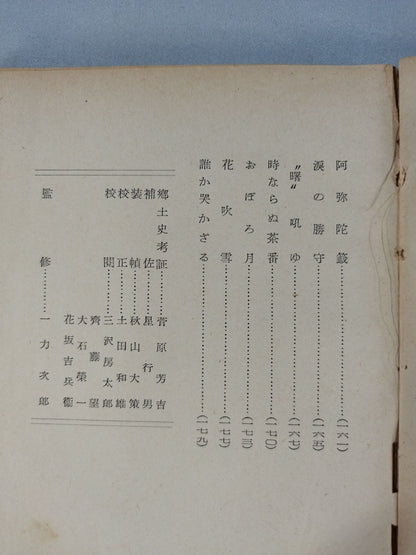 阿弥陀籤……………(一六一)
涙の勝守……………(一六五)
〝曙〟吼ゆ……………(一六七)
時ならぬ茶番……………(一七〇)
おぼろ月……………(一七三)
花吹雪……………(一七七)
誰か哭かざる……………(一七九)
郷土史考証……菅原芳吉
補佐……星行男
装幀……秋山大策
校正……土田和雄
校閲……三沢房太郎
齊藤望
大石榮一
花坂吉兵衞
監修……一力次郎